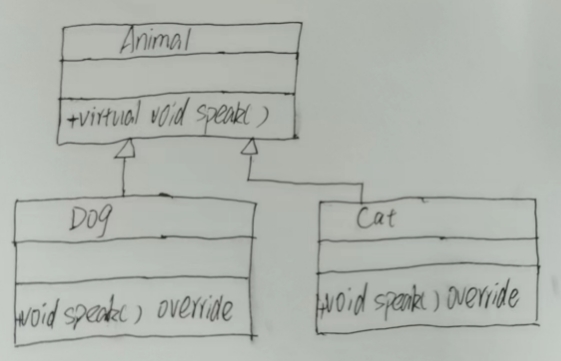 Animal
+virtual void speak()
Dog
Cat
+void speak() override
+void speak() override